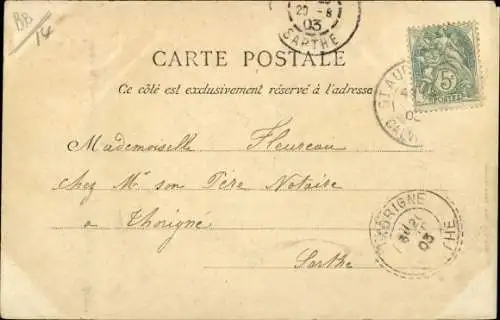 BB
14
20 - 8
03
SARTHE
CARTE POSTALE
Ce côté est exclusivement réservé à l'adresse
5c
POSTES
03
Mademoiselle Fleureau
chez Mr son Père Notaire
a Thorigné
Sarthe
THORIGNE
21
03